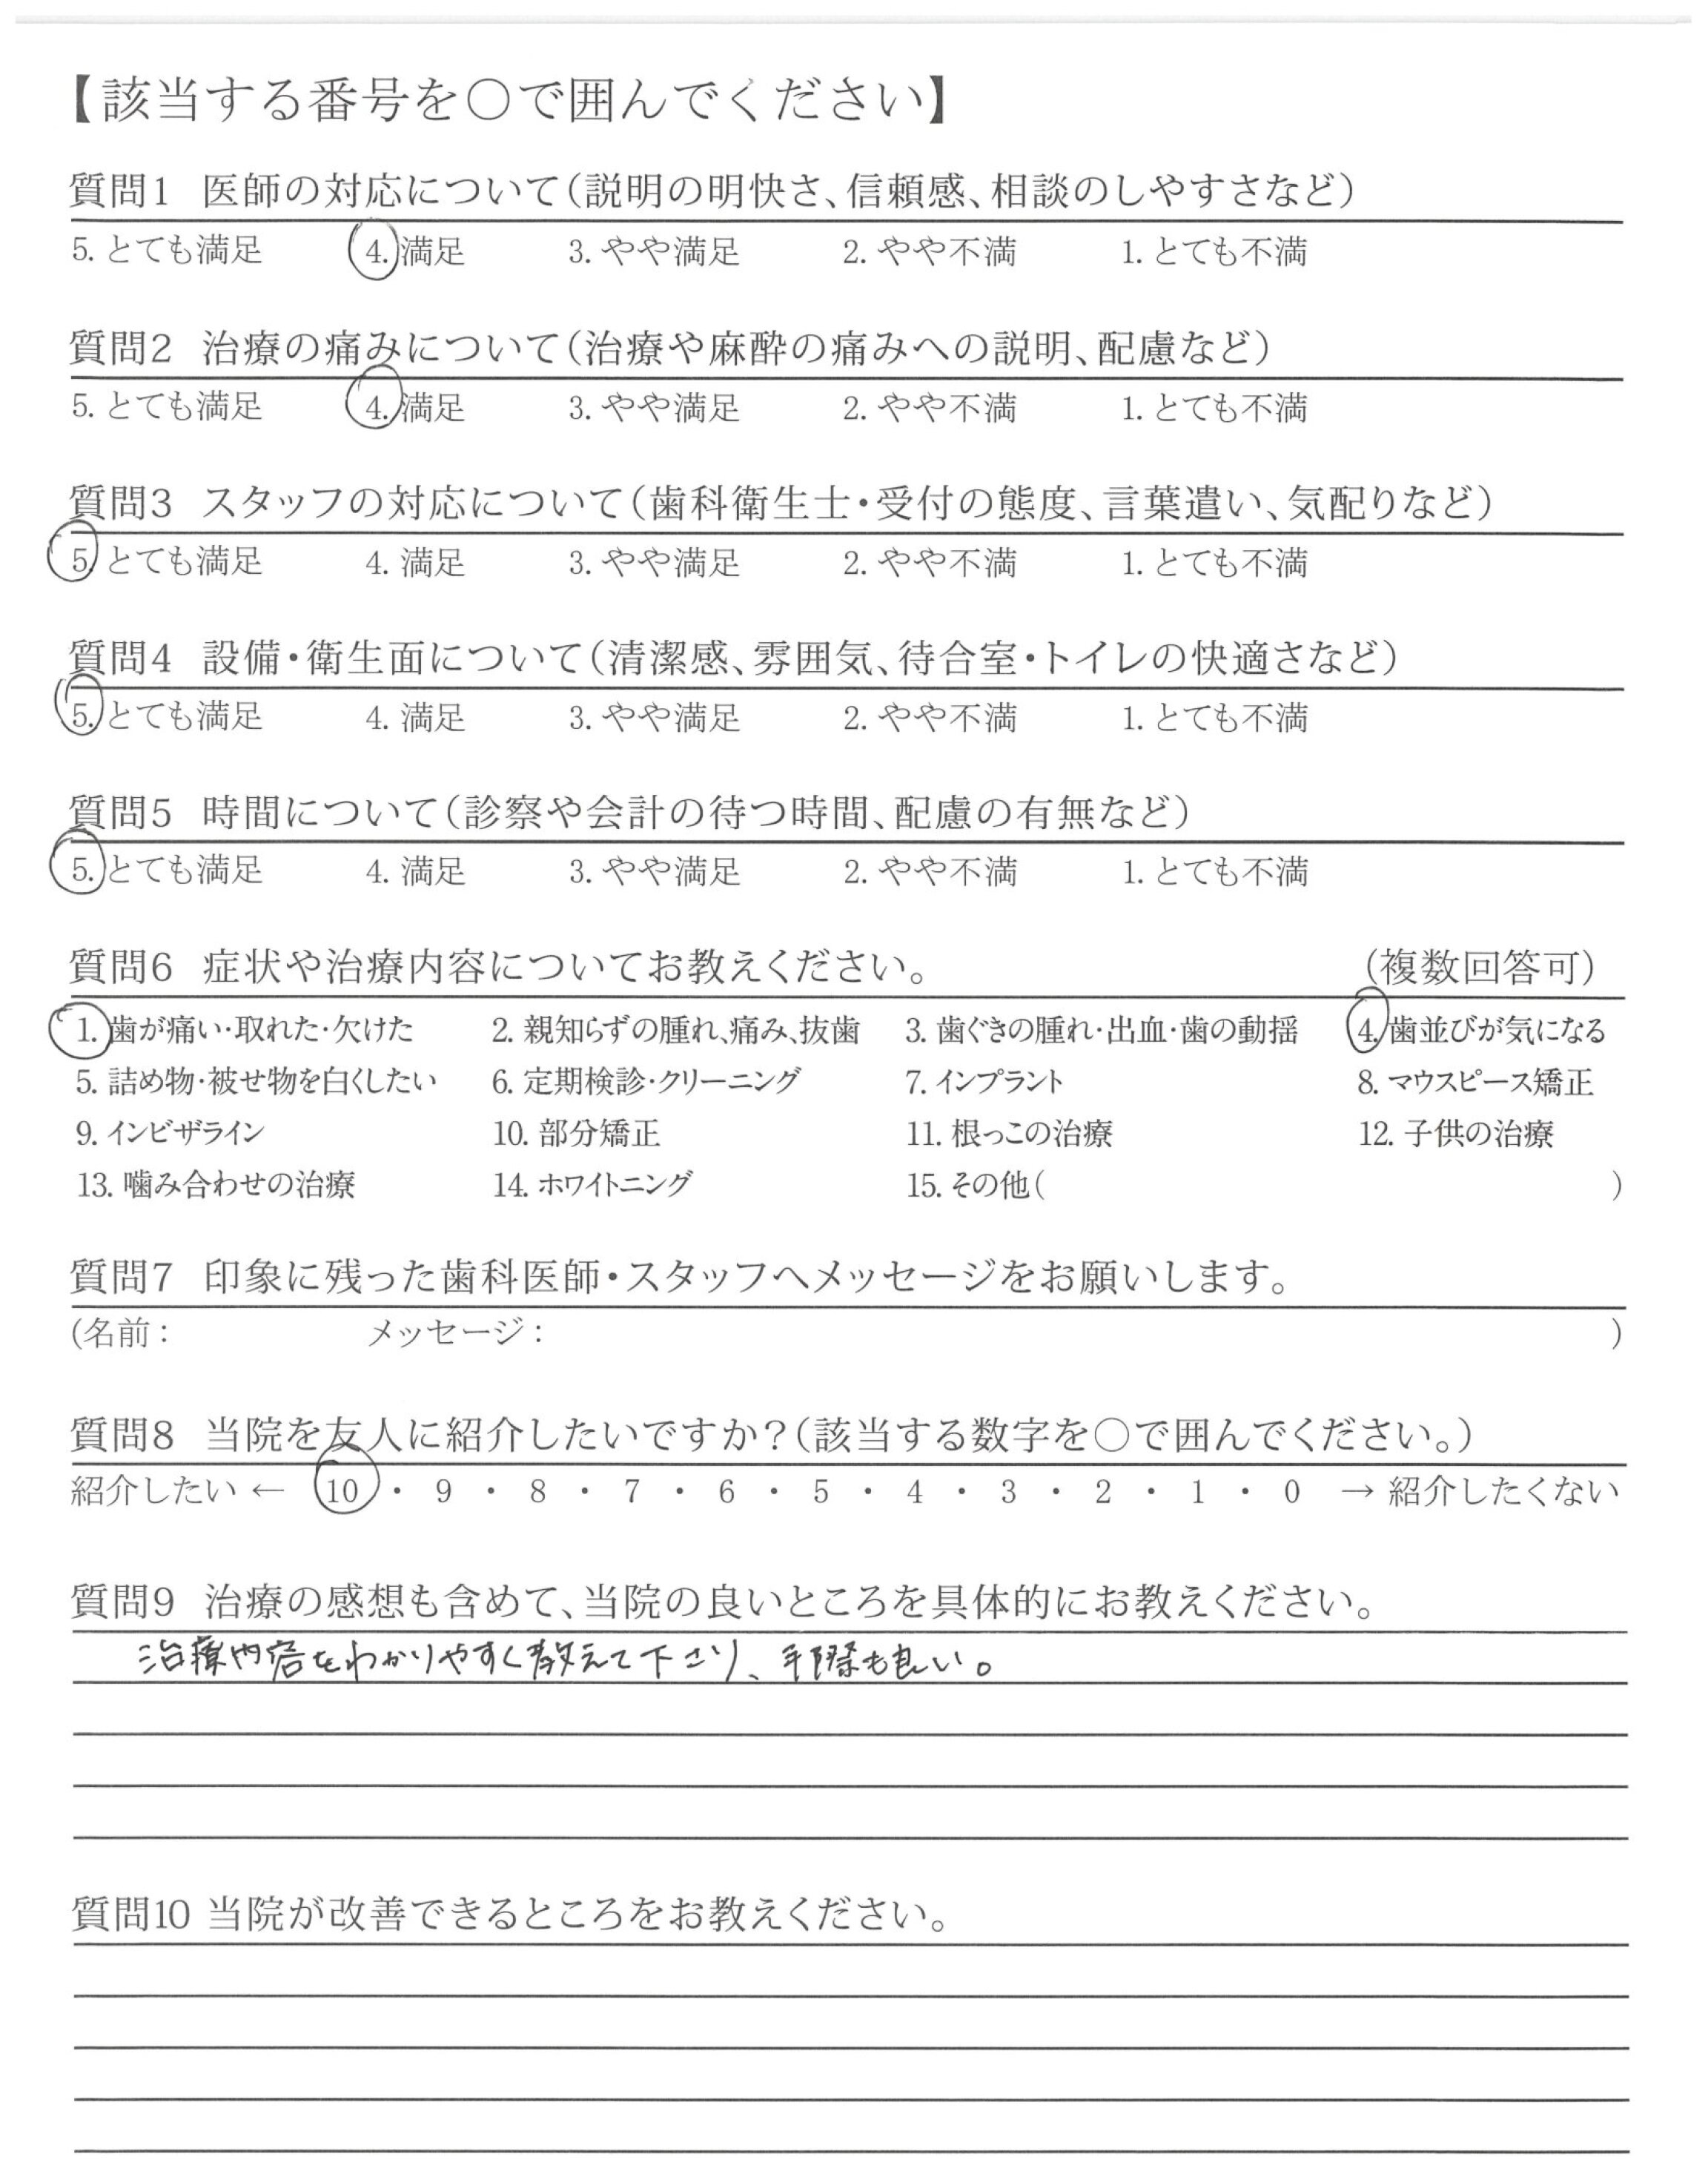 【該当する番号を○で囲んでください】
質問1 医師の対応について(説明の明快さ、信頼感、相談のしやすさなど)
5. とても満足 4. 満足 3. やや満足 2. やや不満 1. とても不満
質問2 治療の痛みについて(治療や麻酔の痛みへの説明、配慮など)
5. とても満足 4. 満足 3. やや満足 2. やや不満 1. とても不満
質問3 スタッフの対応について(歯科衛生士・受付の態度、言葉遣い、気配りなど)
5. とても満足 4. 満足 3. やや満足 2. やや不満 1. とても不満
質問4 設備・衛生面について(清潔感、雰囲気、待合室・トイレの快適さなど)
5. とても満足 4. 満足 3. やや満足 2. やや不満 1. とても不満
質問5 時間について(診察や会計の待つ時間、配慮の有無など)
5. とても満足 4. 満足 3. やや満足 2. やや不満 1. とても不満
質問6 症状や治療内容についてお教えください。 (複数回答可)
1. 歯が痛い・取れた・欠けた 2. 親知らずの腫れ、痛み、抜歯 3. 歯ぐきの腫れ・出血・歯の動揺 4. 歯並びが気になる
5. 詰め物・被せ物を白くしたい 6. 定期検診・クリーニング 7. インプラント 8. マウスピース矯正
9. インビザライン 10. 部分矯正 11. 根っこの治療 12. 子供の治療
13. 噛み合わせの治療 14. ホワイトニング 15. その他( )
質問7 印象に残った歯科医師・スタッフへメッセージをお願いします。
(名前: メッセージ: )
質問8 当院を友人に紹介したいですか?(該当する数字を○で囲んでください。)
紹介したい ← 10 ・ 9 ・ 8 ・ 7 ・ 6 ・ 5 ・ 4 ・ 3 ・ 2 ・ 1 ・ 0 → 紹介したくない
質問9 治療の感想も含めて、当院の良いところを具体的にお教えください。
治療内容をわかりやすく教えて下さり、手際も良い。
質問10 当院が改善できるところをお教えください。